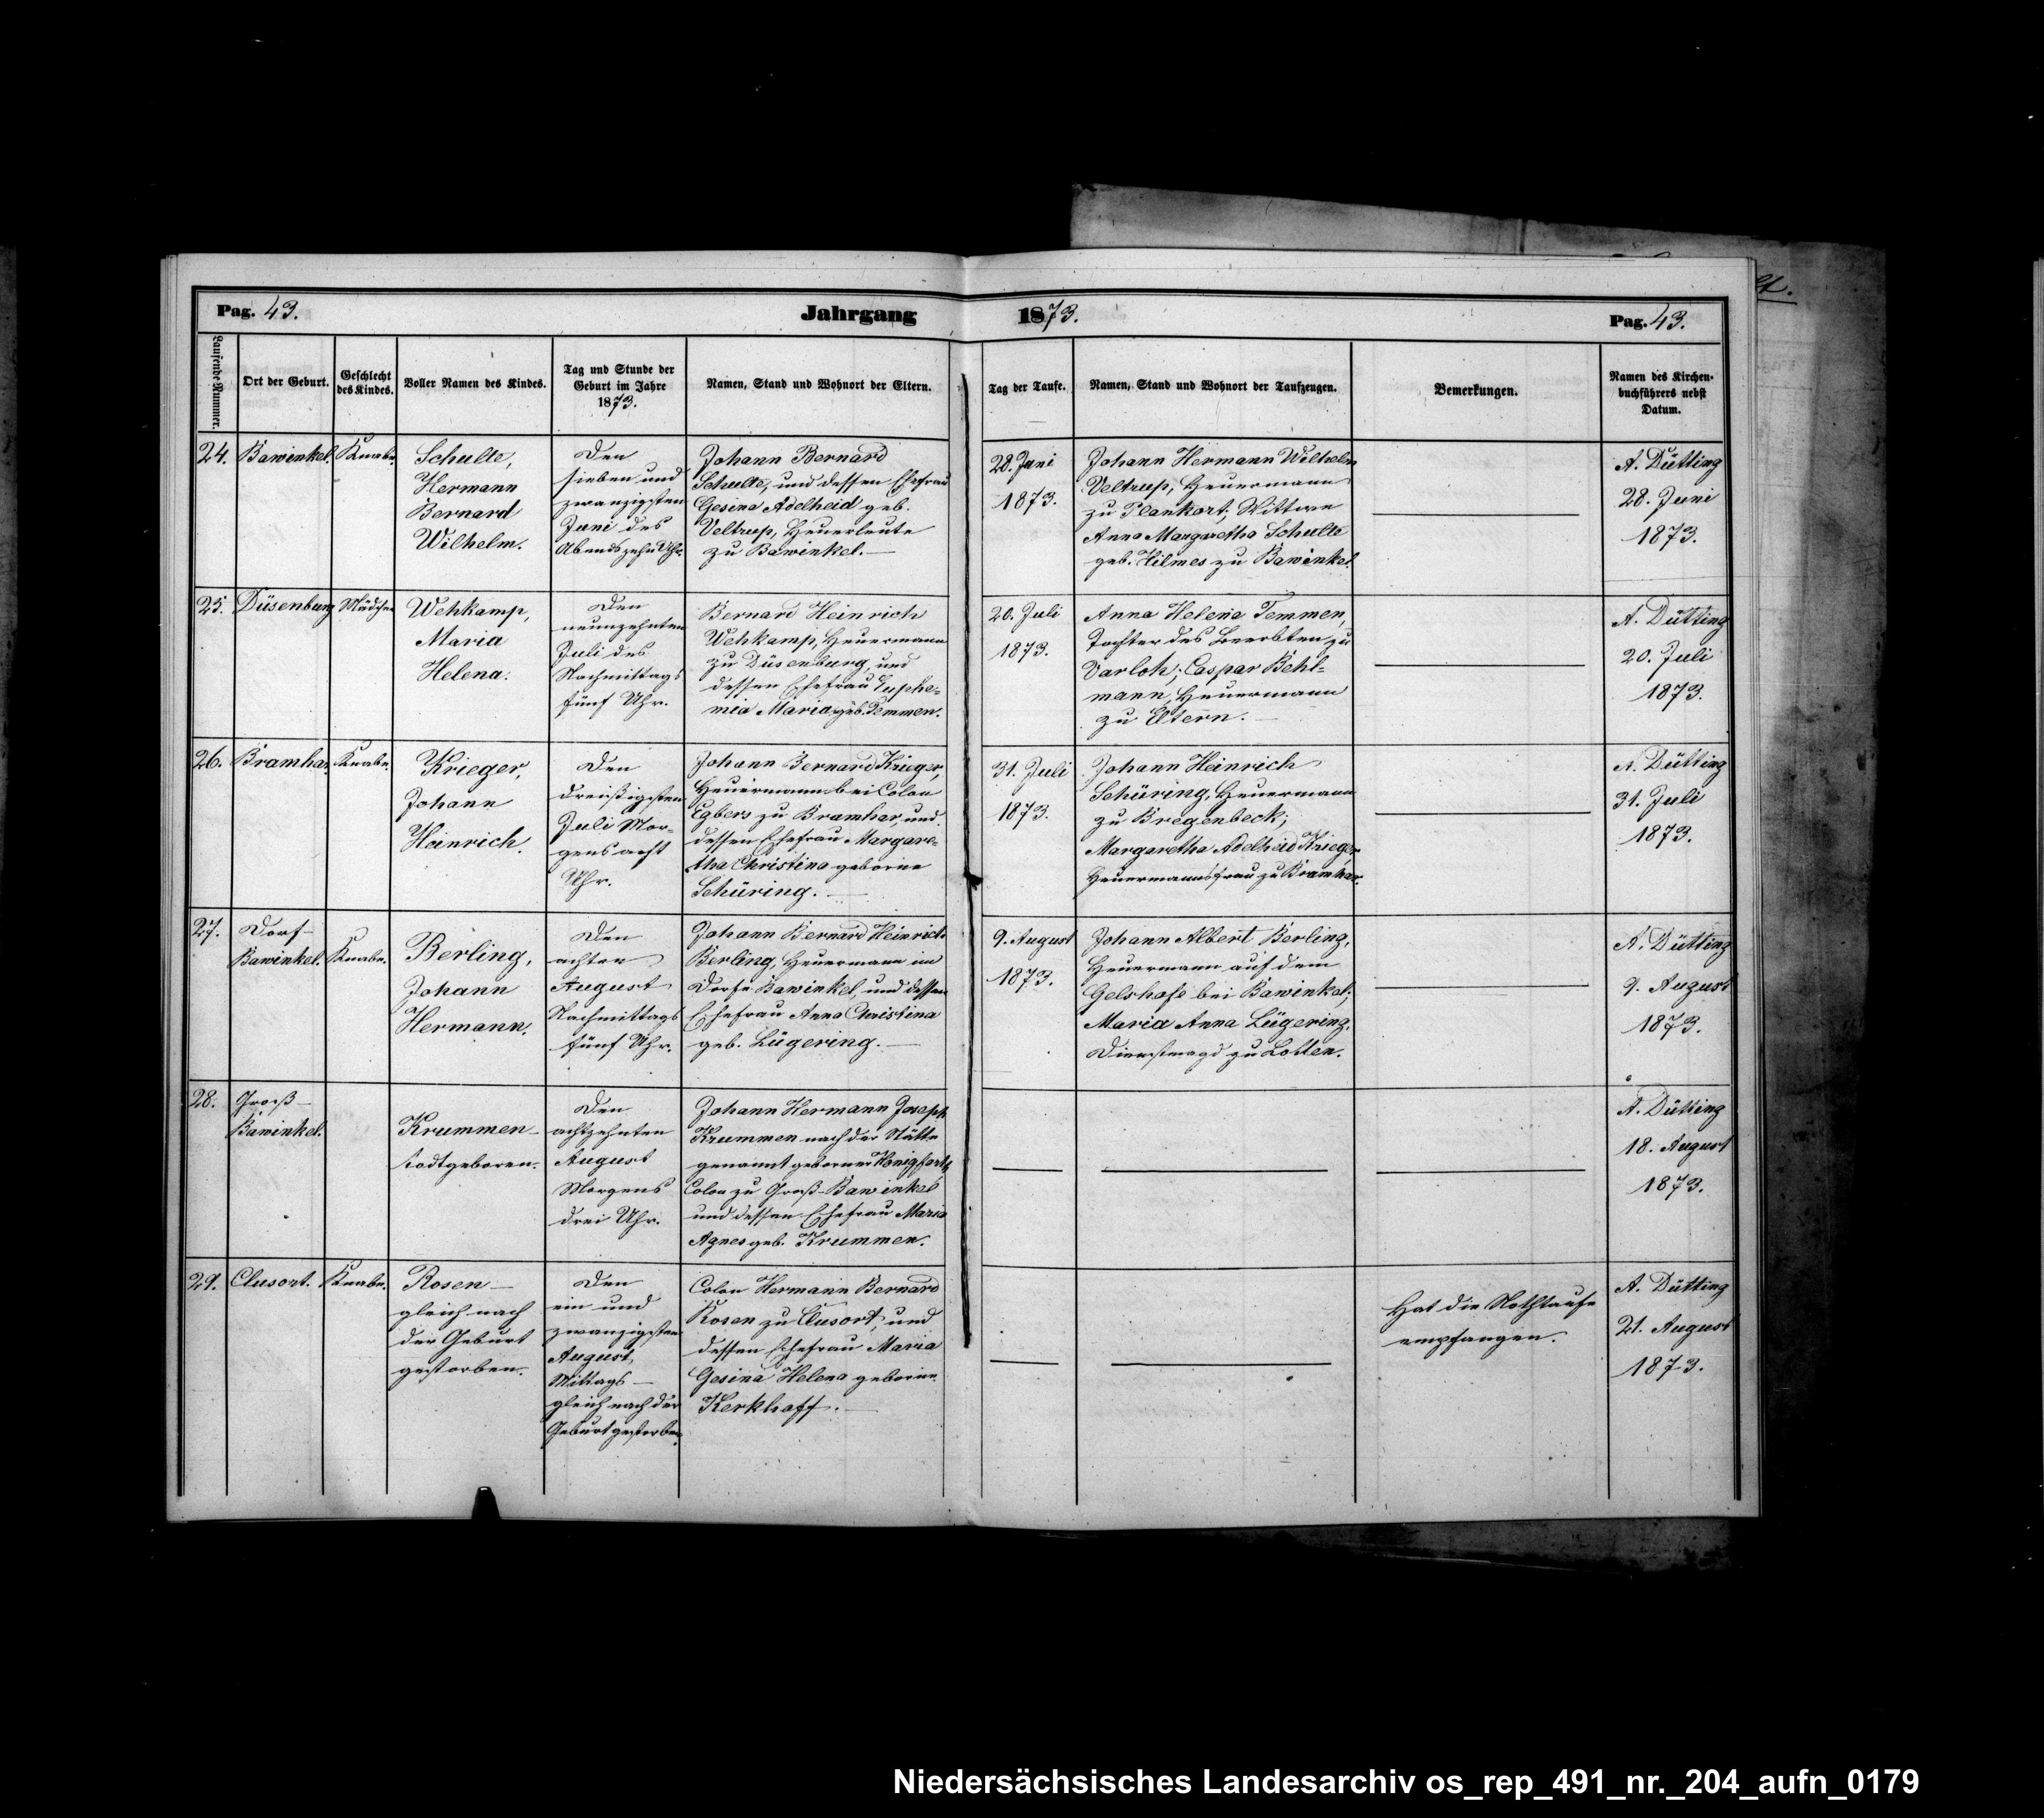 Pag. 43.
Jahrgang 1873.
Pag. 43.
Laufende Nummer.
Ort der Geburt.
Geschlecht
des Kindes.
Voller Namen des Kindes.
Tag und Stunde der
Geburt im Jahre
1873.
Namen, Stand und Wohnort der Eltern.
Tag der Taufe.
Namen, Stand und Wohnort der Taufzeugen.
Bemerkungen.
Namen des Kirchen-
buchführers nebst
Datum.
24.
Bawinkel.
Knabe.
Schulte,
Hermann
Bernard
Wilhelm.
Den
sieben und
zwanzigsten
Juni des
Abends zehn Uhr.
Johann Bernard
Schulte, und dessen Ehefrau
Gesina Adelheid geb.
Veltrup, Heuerleute
zu Bawinkel.
28. Juni
1873.
Johann Hermann Wilhelm
Veltrup, Heuermann
zu Plankort; Wittwe
Anna Margaretha Schulte
geb. Hilmes zu Bawinkel.
A. Dütting
28. Juni
1873.
25.
Düsenburg
Mädchen
Wehkamp,
Maria
Helena.
Den
neunzehnten
Juli des
Nachmittags
fünf Uhr.
Bernard Heinrich
Wehkamp, Heuermann
zu Düsenburg, und
dessen Ehefrau Euphe-
mia Maria, geb. Temmen.
20. Juli
1873.
Anna Helena Temmen,
Tochter des Beerbten zu
Varloh; Caspar Behl-
mann, Heuermann
zu Eltern.
A. Dütting
20. Juli
1873.
26.
Bramhar.
Knabe.
Krieger,
Johann
Heinrich.
Den
dreißigsten
Juli Mor-
gens acht
Uhr.
Johann Bernard Krieger,
Heuermann bei Colon
Egbers zu Bramhar, und
dessen Ehefrau Margare-
tha Christina geborne
Schüring.
31. Juli
1873.
Johann Heinrich
Schüring, Heuermann
zu Bregenbeck;
Margaretha Adelheid Krieger
Heuermannsfrau zu Bramhar.
A. Dütting
31. Juli
1873.
27.
Dorf-
Bawinkel.
Knabe.
Berling,
Johann
Hermann.
Den
achten
August
Nachmittags
fünf Uhr.
Johann Bernard Heinrich
Berling, Heuermann im
Dorfe Bawinkel, und dessen
Ehefrau Anna Christina
geb. Lügering.
9. August
1873.
Johann Albert Berling,
Heuermann auf dem
Gelshofe bei Bawinkel;
Maria Anna Lügering,
Dienstmagd zu Lotten.
A. Dütting
9. August
1873.
28.
Groß-
Bawinkel.
Krummen-
todtgeboren.
Den
achtzehnten
August
Morgens
drei Uhr.
Johann Hermann Joseph
Krummen nach der Stätte
genannt geborner Honigfort,
Colon zu Groß-Bawinkel
und dessen Ehefrau Maria
Agnes geb. Krummen.
A. Dütting
18. August
1873.
29.
Clusort.
Knabe.
Rosen-
gleich nach
der Geburt
gestorben.
Den
ein und
zwanzigsten
August,
Mittags-
gleich nach der
Geburt gestorben.
Colon Hermann Bernard
Rosen zu Clusort, und
dessen Ehefrau Maria
Gesina Helena geborne
Kerkhoff.
Hat die Nothtaufe
empfangen.
A. Dütting
21. August
1873.
Niedersächsisches Landesarchiv os_rep_491_nr._204_aufn_0179